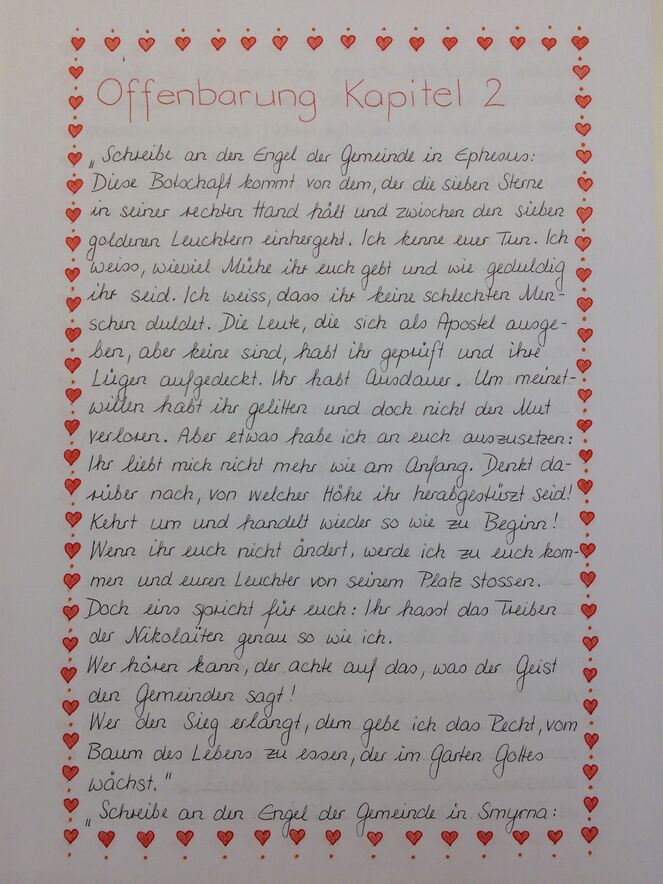 Offenbarung Kapitel 2
„Schreibe an den Engel der Gemeinde in Ephesus:
Diese Botschaft kommt von dem, der die sieben Sterne
in seiner rechten Hand hält und zwischen den sieben
goldenen Leuchtern einhergeht. Ich kenne euer Tun. Ich
weiss, wieviel Mühe ihr euch gebt und wie geduldig
ihr seid. Ich weiss, dass ihr keine schlechten Men-
schen duldet. Die Leute, die sich als Apostel ausge-
ben, aber keine sind, habt ihr geprüft und ihre
Lügen aufgedeckt. Ihr habt Ausdauer. Um meinet-
willen habt ihr gelitten und doch nicht den Mut
verloren. Aber etwas habe ich an euch auszusetzen:
Ihr liebt mich nicht mehr wie am Anfang. Denkt da-
rüber nach, von welcher Höhe ihr herabgestürzt seid!
Kehrt um und handelt wieder so wie zu Beginn!
Wenn ihr euch nicht ändert, werde ich zu euch kom-
men und euren Leuchter von seinem Platz stossen.
Doch eins spricht für euch: Ihr hasst das Treiben
der Nikolaiten genau so wie ich.
Wer hören kann, der achte auf das, was der Geist
den Gemeinden sagt!
Wer den Sieg erlangt, dem gebe ich das Recht, vom
Baum des Lebens zu essen, der im Garten Gottes
wächst."
„Schreibe an den Engel der Gemeinde in Smyrna: